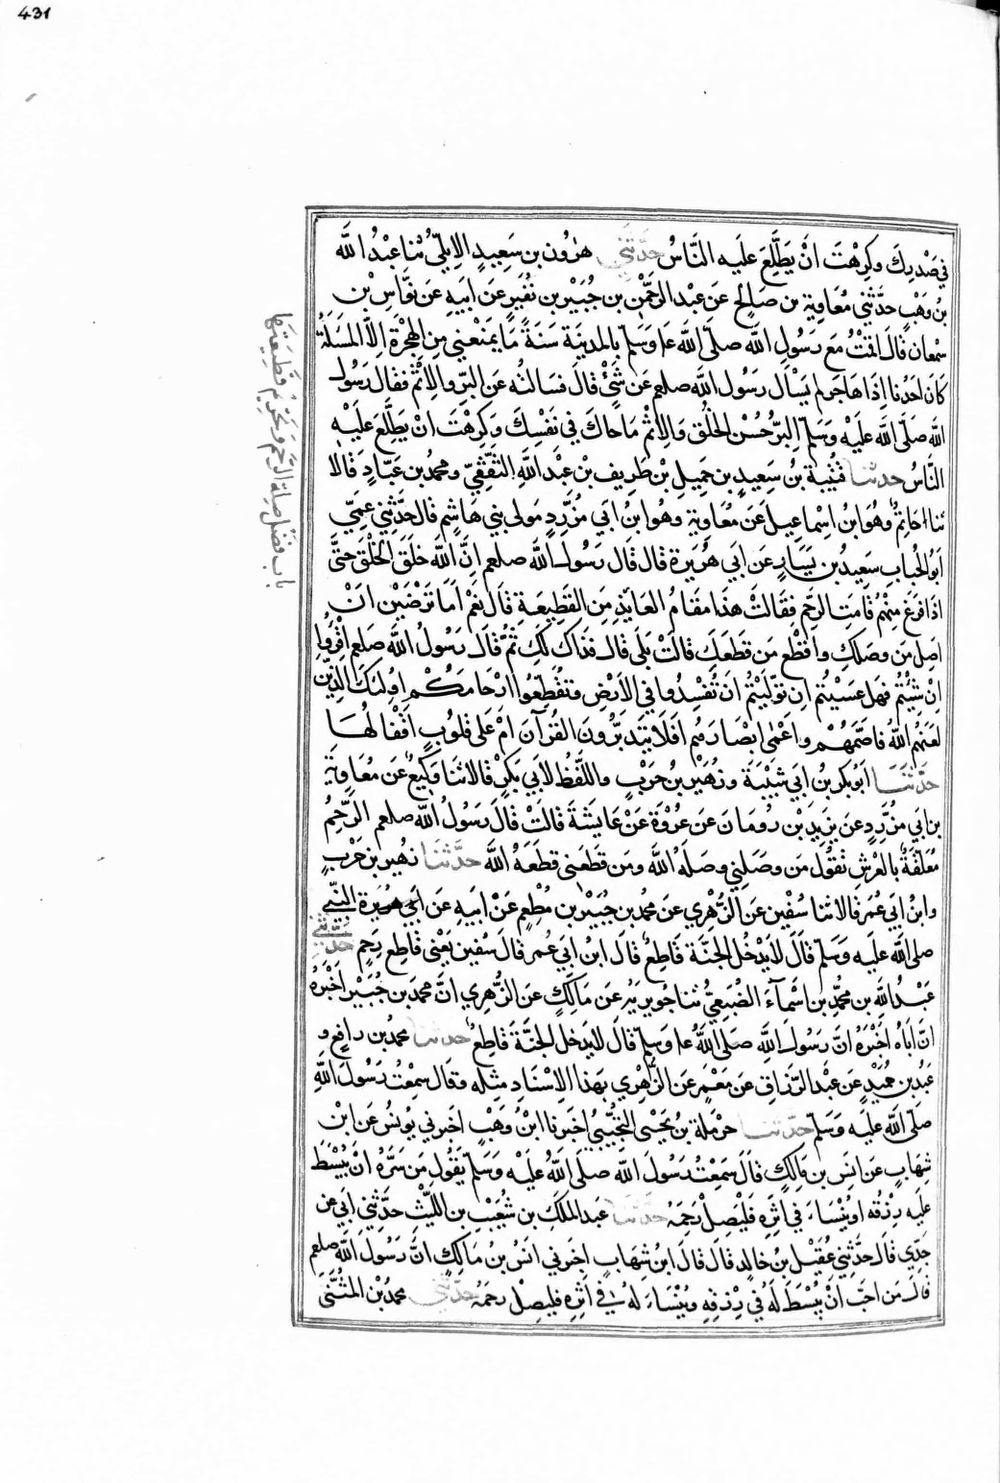 431
في صَدْرِكَ وكَرِهْتَ انْ يَطَّلِعَ علَيه النَّاسُ حَدَّثَنِي هٰرُون بن سَعِيدٍ الاِيليّ ثنا عبْدُ الله
بنُ وَهْبٍ حدَّثني مُعَاوِية بن صَالِحٍ عَن عبْد الرَّحْمٰن بن جُبَيْر بن نُفَيرٍ عَن ابِيهِ عَن نوَّاس بن
سِمْعان قَالَ اقَمْتُ مَعَ رَسُولِ الله صلّى الله عا وسَلّم بالمدينَة سَنَةً مَا يمنَعْني مِنَ الهِجْرَة اِلاّ المسَلَةُ
كانَ احَدُنا اِذَا هَاجَر لم يَسْأل رَسُول الله صلعم عَن شَيْءٍ قالَ فسَالتُه عَن البرّ والاِثم فقال رَسُول
الله صَلّى الله علَيْه وَسَلّم البِرّ حُسْن الخُلُق وَالاِثم مَا حاكَ في نَفْسِكَ وَكَرِهْتَ انْ يطَّلَعَ علَيْهِ
النَّاسُ حدثنا قتَيْبة بنُ سَعِيدِ بن جَمِيل بن طَرِيف بن عبْد اللهِ الثقَفيّ ومحمدُ بن عَبّادٍ قَالا
ثنا حَاتِمٌ وهُوَ ابنُ اِسْماعِيلَ عَن مُعَاوِية وهُوَ ابنُ ابي مُزَرِّدٍ مَولى بني هَاشِمٍ قَال حدَّثني عمِّي
ابُو الحُبابِ سَعِيدُ بن يَسَارٍ عَن ابي هُرَيرَة قال قَالَ رَسُول الله صلعم اِنَّ الله خَلَقَ الخَلْقَ حتَّى
اذا فرَغَ مِنْهُم قامَتِ الرَّحِم فقَالَتْ هَذا مقَامُ العَايذِ مِنَ القَطِيعَةِ قَالَ نعَمْ امَا تَرْضَيْن انْ
اصِلَ مَن وصَلَكِ واقطَع مَن قطَعَكِ قالَتْ بَلى قالَ فذاكَ لَكِ ثمّ قَالَ رَسُولُ الله صلعم اقْرَؤا
انْ شئتُمْ فهَل عسَيْتُم اِن تولَّيْتُم انْ تُفْسِدُوا في الاَرْضِ وتقَطِّعُوا ارْحَامَكُمْ اُولئكَ الذِين
لعَنَهُم اللهُ فاصَمَّهُم واعْمٰى ابْصَارَهُم افَلَا يتَدَبَّرُونَ القُرْآنَ امْ عَلى قلُوبٍ اقْفالُهَا
حَدَّثَنَا ابُو بكر بنُ ابي شَيْبَة وزُهَيْر بنُ حَرْبٍ واللّفظ لاَبي بَكْرٍ قالا ثنا وَكِيعٌ عَن مُعَاوِيَة
بن ابي مُزَرِّدٍ عَن يزِيدِ بن رُومَانَ عَن عُرْوَة عَنْ عَايشَةَ قالَتْ قالَ رَسُولُ الله صلعم الرَّحِمُ
مُعَلّقَةٌ بالعَرْشِ تقُول مَن وصَلَني وصَلَهُ اللهُ ومَن قطَعَني قطَعَهُ اللهُ حدَّثنا زهَير بن حَرْبٍ
وابنُ ابي عُمَر قَالا ثنا سُفْين عَن الزُّهْري عَن محمد بن جبَيْر بن مُطْعِمٍ عَنْ ابيهِ عَن ابي هريرة النَّبي
صلى الله علَيه وَسَلّم قالَ لا يدْخُل الجنَّة قَاطِعٌ قالَ ابن ابي عُمر قالَ سُفْين يَعْني قاطع رَحِم حدَّثني
عَبْدُ الله بن محمَّدِ بن اسْمآءَ الضُّبَعيُّ ثنا جُوَيريَةُ عَن مَالِكٍ عَن الزُّهري انَّ محمدَ بن جُبَيْرٍ اخْبَرهُ
انَّ ابَاهُ اخْبَرَهُ انَّ رَسُولَ الله صَلى اللهُ عا وسَلّم قالَ لا يَدخُل الجنَّة قَاطِعٌ حدثنا محمدُ بن رافِعٍ و
عَبْدُ بن حُمَيْدٍ عَن عبْد الرَّزاق عَن مَعْمَرٍ عَن الزُّهْري بهَذا الاِسْنَادِ مِثلَه وقالَ سمِعْتُ رَسُول اللهِ
صَلّى اللهُ علَيه وَسَلّم حدّثنا حَرْمَلة بنُ يَحْيَى التُّجيْبيُّ اخبَرنا ابنُ وَهْبٍ اخبَرني يُونسُ عَن ابنِ
شِهَابٍ عَن انَس بن مَالِكٍ قالَ سَمعْتُ رَسُولَ الله صلى اللهُ عليْه وَسَلّم يَقُول مَن سَرَّهُ انْ يُبْسَطَ
علَيه رِزْقُه او يُنْسَاءَ في اثَرِهِ فَليَصِلْ رَحِمَهُ حدّثنا عبد المَلكِ بن شُعَيْب بن اللّيْث حدَّثني ابي عن
جَدِّي قالَ حدَّثني عُقَيْل بنُ خالِدٍ قالَ قالَ ابنُ شِهَابٍ اخبَرني انَسُ بنُ مَالِكٍ انَّ رَسُولَ الله صلعم
قالَ مَن احَبَّ انْ يُبْسَطَ لَهُ في رِزقِهِ ويُنْسَاءَ لهُ في اثَرِهِ فليَصِلْ رحِمَهُ حدّثني محمدُ بن المُثنَّى
باب فَضْلِ صِلة الرَّحِم وتحْرِيم قطِيعَتِهَا